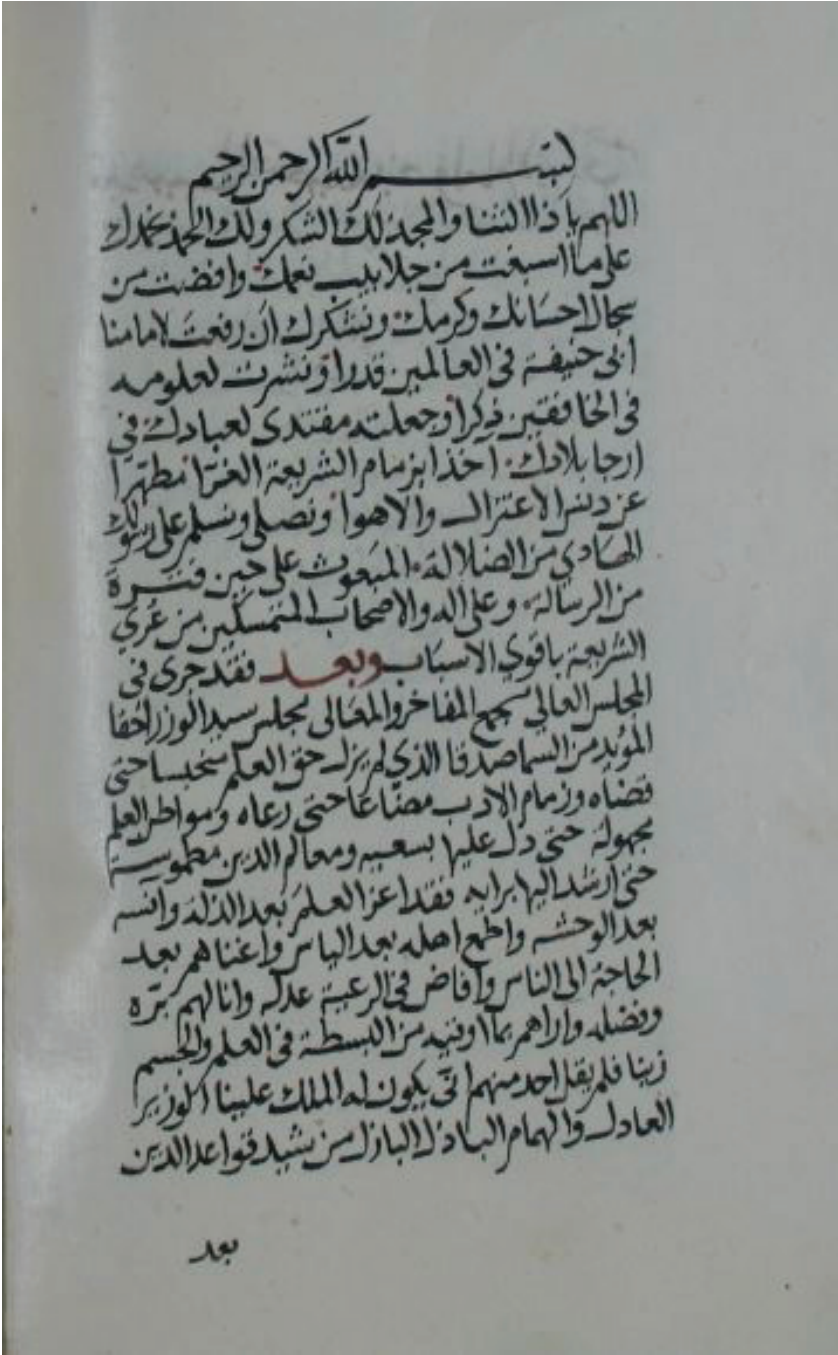 بسم الله الرحمن الرحيم
اللهم ياذا الثنا والمجد لك الشكر ولك الحمد نحمدك
على ما اسبغت من جلابيب نعمك وافضت من
سجال احسانك وكرمك ونشكرك ان رفعت لامامنا
ابي حنيفة في العالمين قدرا ونشرت لعلومه
في الخافقين ذكرا وجعلته مقتدى لعبادك في
ارجا بلادك اخذا بزمام الشريعة الغرا مطهرا
عن دنس الاعتزال والاهوا ونصلي ونسلم على رسولك
الهادي من الضلالة المبعوث على حين فترة
من الرسالة وعلى اله والاصحاب المتمسكين من عرى
الشريعة باقوى الاسباب وبعد فقد جرى في
المجلس العالي مجمع المفاخر والمعالي مجلس سيد الوزرا حقا
المؤيد من السما صدقا الذي لم يزل حق العلم منحبسا حتى
قضاه وزمام الادب مضاعا حتى رعاه ومواطن العلم
مجهولة حتى دل عليها بسعيه ومعالم الدين مطموسة
حتى ارشد اليها برايه فقد اعز العلم بعد الذلة وآنسه
بعد الوحشه واطمع اهله بعد الياس واغناهم بعد
الحاجة الى الناس وافاض في الرعية عدله وانالهم بره
وفضله واراهم بما اوتيه من البسطة في العلم والجسم
زينا فلم يقل احد منهم انى يكون له الملك علينا الوزير
العادل والهمام الباذل البازل من يشيد قواعد الدين
بعد